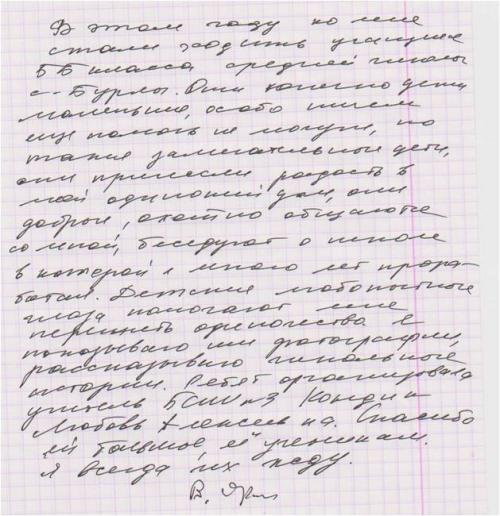 В этом году ко мне
стали ходить учащиеся
5Б класса средней школы
с. Бурлы. Они конечно дети
маленькие, особо ничем
еще помочь не могут, но
такие замечательные дети,
они принесли радость в
мой одинокий дом, они
добрые, охотно общаются
со мной, беседуют о школе
в которой я много лет прора-
ботал. Детские любопытные
глаза помогают мне
пережить одиночество я
показываю им фотографии,
рассказываю школьные
истории. Ребят организовала
учитель БСШ №3
Любовь Алексеевна. Спасибо
ей большое, её ученикам.
Я всегда их жду.
В.